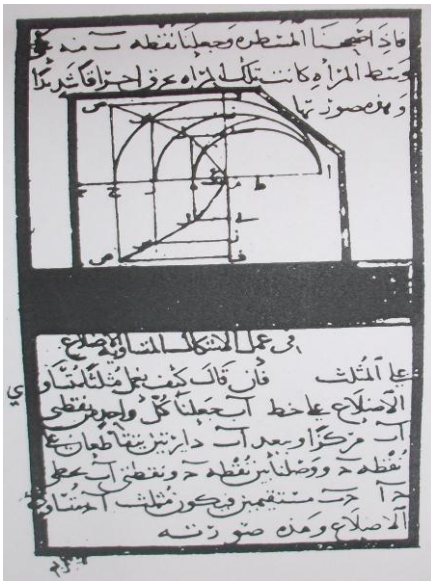 وجعلنا نقطه ب منه على
وسط المراه كانت تلك المراه تحرق احراقا شديدا
وهذه صورتها
ص
ا
ط
ح
ص
في عمل الاشكال المتساويه الاضلاع
على المثلث فان قال كيف نعمل مثلثا متساوي
الاضلاع على خط اب جعلنا كل واحد من نقطتي
اب مركزا وببعد اب دايرتين يتقاطعان على
نقطه ووصلنا بين نقطه ونقطتي اب بخطي
مستقيمين فيكون مثلث متساوي
الاضلاع وهذه صورته